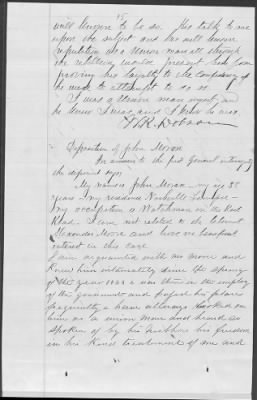 15
well known to be so. His talk to me
upon the subject and his well known
reputation as a Union man all through
the rebellion would prevent him from
proving his loyalty to the Confederacy if
he was to attempt to do so
I was a Union man myself and
he knew I was and I knew he was
Robson
Deposition of John Moran
In answer to the first General interrogatory
the deponent says
My name is John Moran my age 38
years my residence Nashville Tennessee
my occupation a Watchman on the Rail
Road. I am not related to the Claimant
Alexander Moore and have no beneficial
interest in this case
I am acquainted with Mr Moore and
knew him intimately since the Spring
of the year 1862 I was then in the employ
of the government and passed his place
frequently I have always looked on
him as a union man and heard so
spoken of by his neighbors his
in his kind treatment of me and